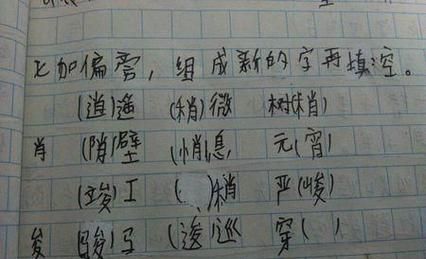 匕加偏旁，组成新的字再填空。
(逍)遥 (稍)微 树(梢)
肖 (陗)壁 (悄)息 元(宵)
(竣)工 ( )稍 严(峻)
夋 (骏)马 (逡)巡 穿( )